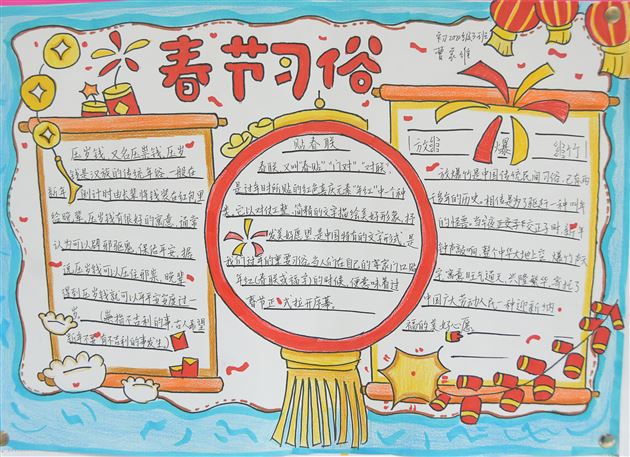 春节习俗
初2020级3班
压岁钱,又名压祟钱,压岁
钱是汉族的传统年俗,一般在
新年倒计时由长辈将钱装在红包里
给晚辈,压岁钱有很好的寓意,通常
认为可以辟邪驱鬼,保佑平安,据
说压岁钱可以压住邪祟,晚辈
得到压岁钱就可以平平安安度过一
岁。(祟指不吉利的事,古人希望
新年不要有不吉利的事发生)
贴春联
春联,又叫"春贴""门对""对联"
是过年时所贴的红色喜庆元素"年红"中一个种
类,它以对仗工整,简洁的文字描绘美好形象,抒
发美好愿望,是中国特有的文字形式,是
我们过年的重要习俗,当人们在自己的家家门口贴
年红(春联或福字)的时候,便意味着过
春节正式拉开序幕。
放 爆竹
放爆竹是中国传统民间习俗,已有两
千多年的历史。相传是为了驱赶一种叫年
的怪兽。当子夜正交子午交正子时,新年
钟声敲响,整个中华大地上空,爆竹声
寓意旺气通天,兴隆繁华,寄托了
中国广大劳动人民一种迎新纳
福的美好心愿。